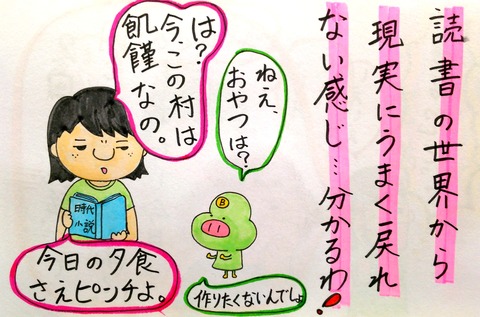 読書の世界から
現実にうまく戻れ
ない感じ…分かるわ!
ねえ、
おやつは?
は?
今、この村は
飢饉なの。
B
時代
小説
今日の夕食
さえピンチよ。
作りたくないんでしょ